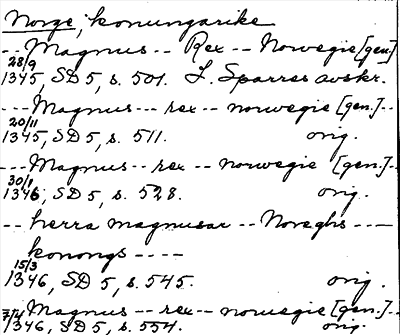 Norge, konungarike
-- Magnus -- Rex -- Norwegie [gen]
28/9
1345, SD 5, s. 501. L. Sparres avskr.
--- Magnus --- rex -- norwegie [gen.] --
20/11
1345, SD 5, s. 511. orig.
--- Magnus -- rex -- norwegie [gen.] --
30/1
1346, SD 5, s. 528. orig.
-- herra magnusar -- Noreghs ---
konongs ----
15/3
1346, SD 5, s. 545. orig.
-- Magnus -- rex -- norwegie [gen.] --
7/4
1346, SD 5, s. 554. orig.